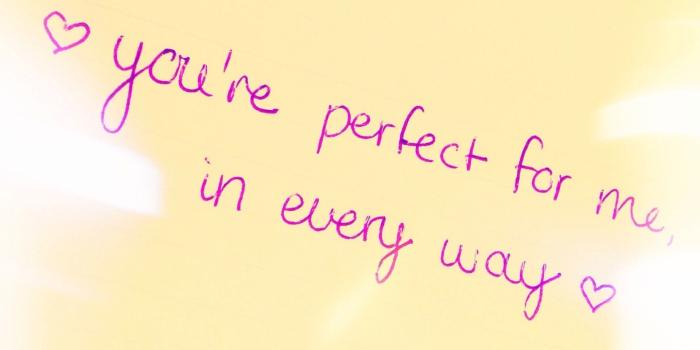 ♡ you're perfect for me,
in every way ♡